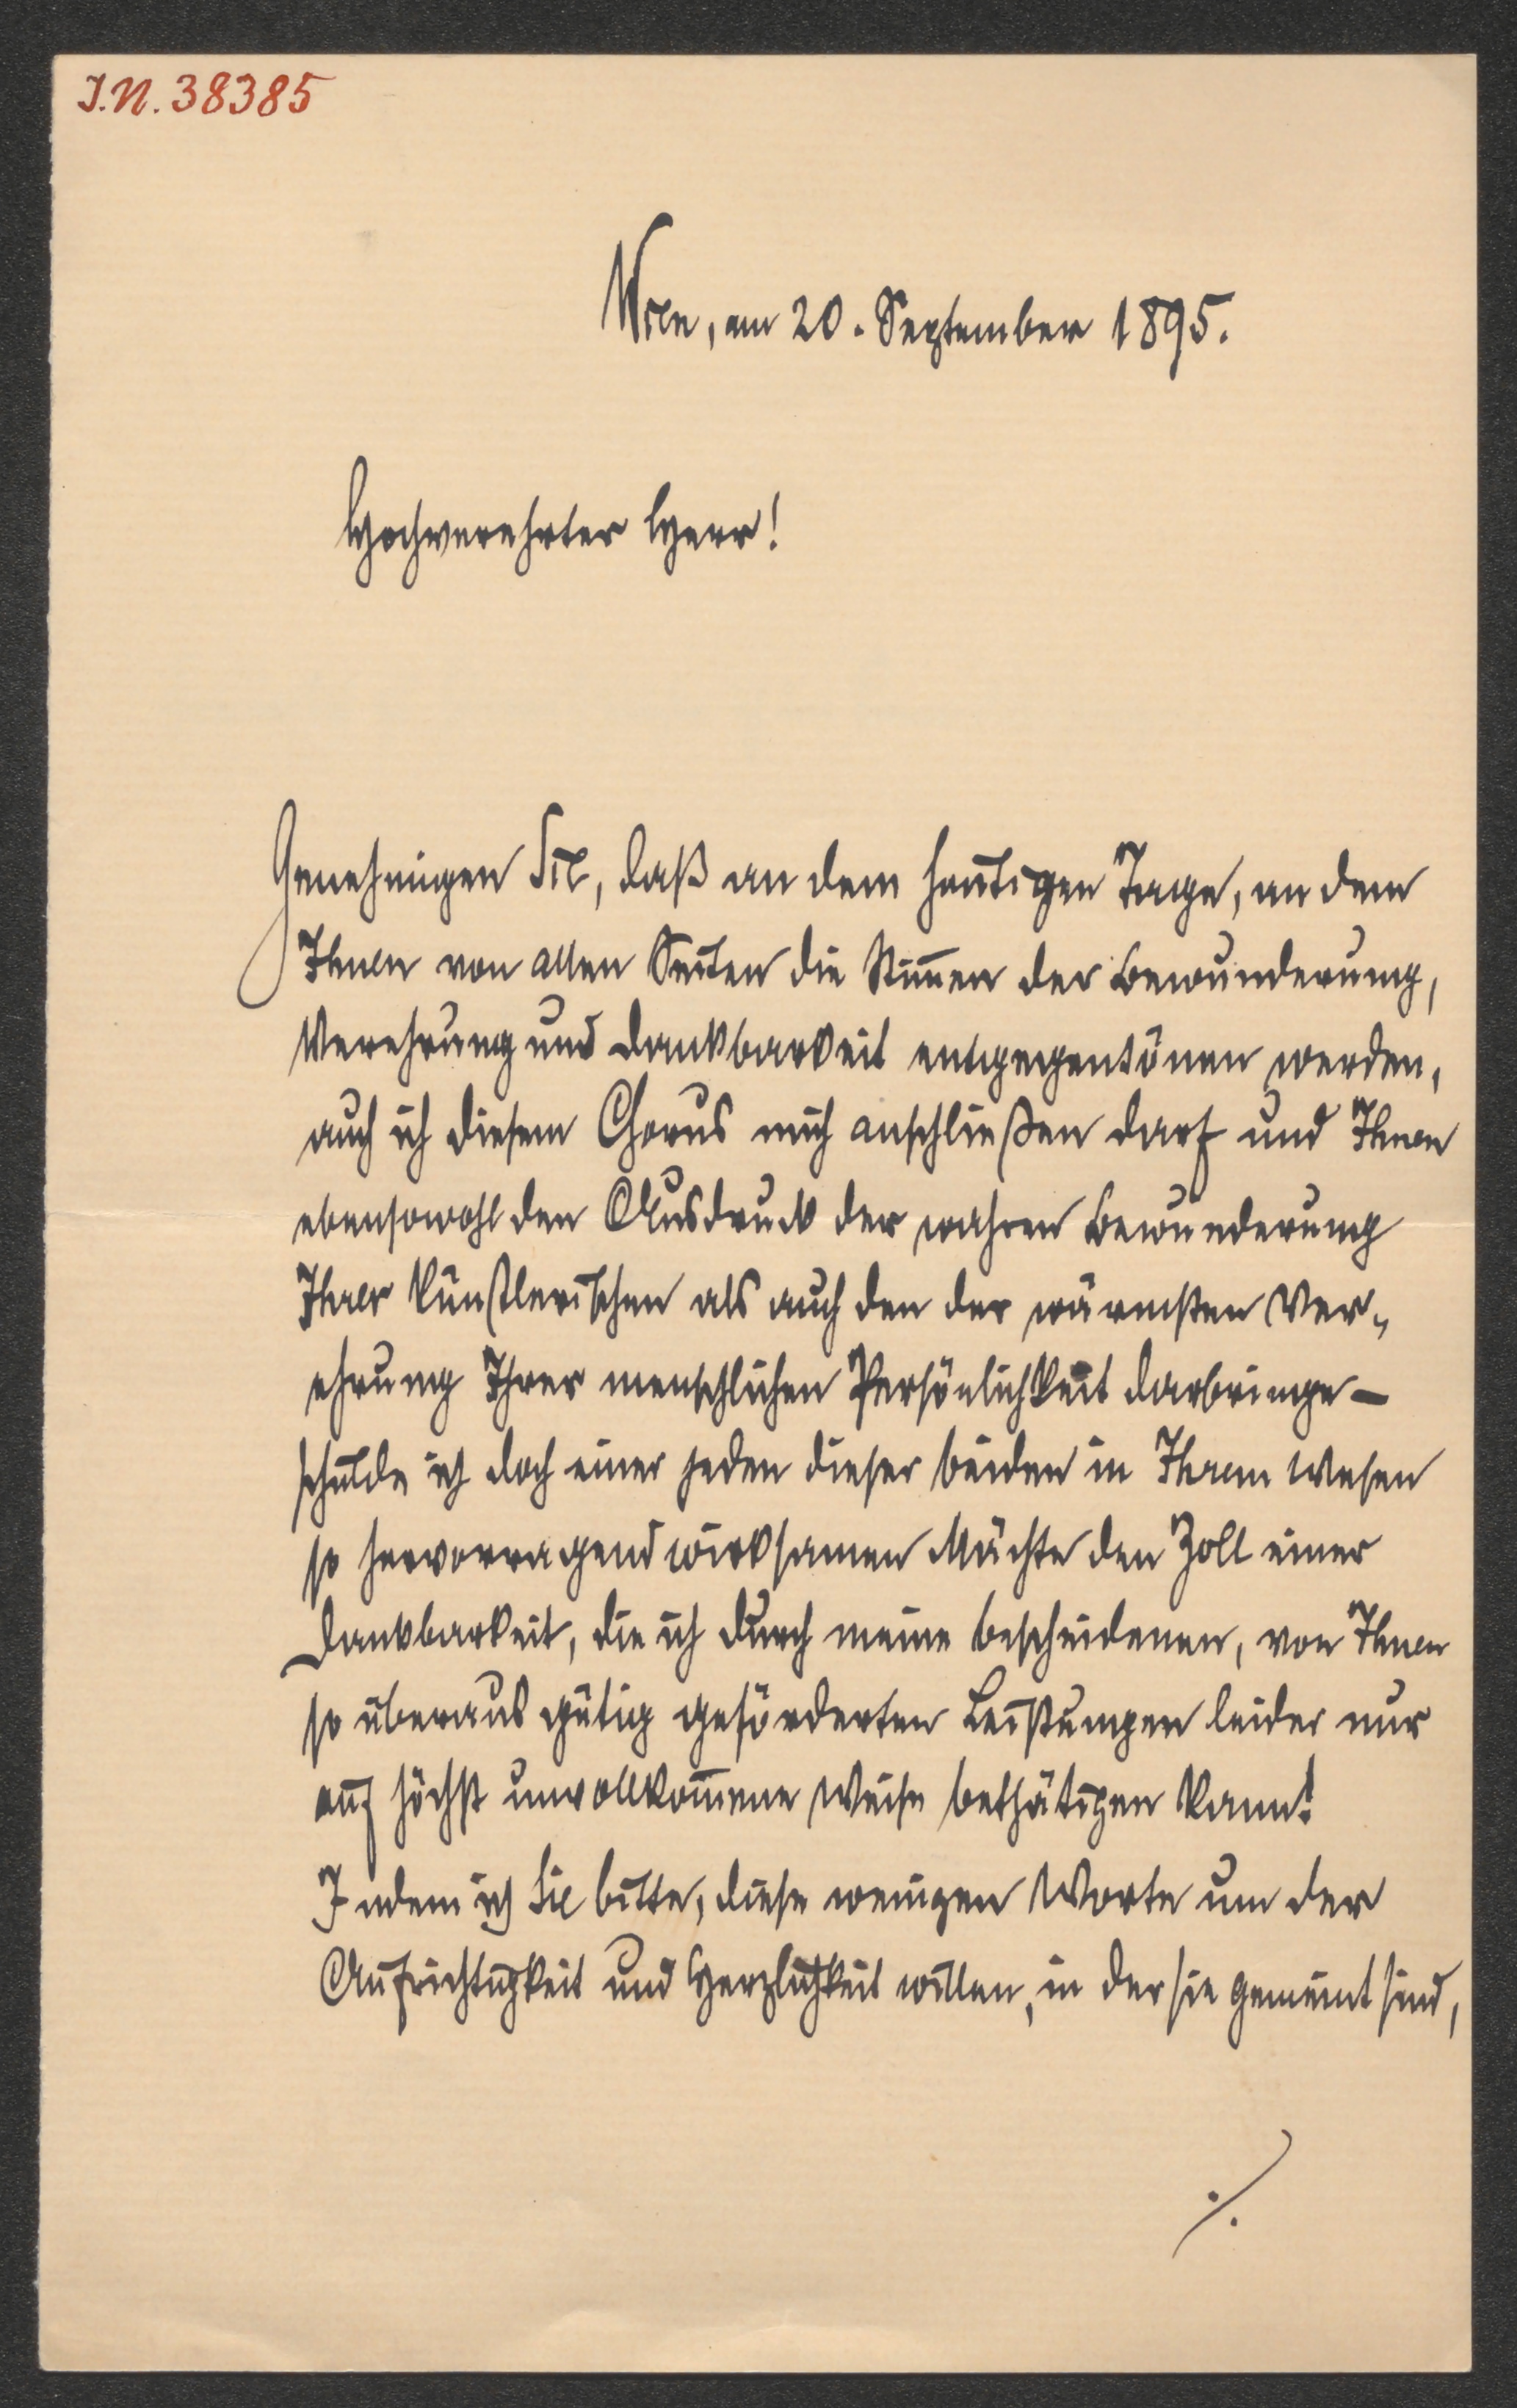 J.N. 38385
Wien, am 20. September 1895.
Hochverehrter Herr!
Genehmigen Sie, daß an dem heutigen Tage, an dem
Ihnen von allen Seiten die Stim̅en der Bewunderung,
Verehrung und Dankbarkeit entgegentönen werden,
auch ich diesem Chorus mich anschließen darf und Ihnen
ebensowohl den Ausdruck der wahren Bewunderung
Ihrer künstlerischen als auch den der wärmsten Ver-
ehrung Ihrer menschlichen Persönlichkeit darbringe –
schulde ich doch einer jeden dieser beiden in Ihrem Wesen
so hervorragend wirksamen Mächte den Zoll einer
Dankbarkeit, die ich durch meine bescheidenen, von Ihnen
so überaus gütig geförderten Leistungen leider nur
auf höchst unvollkom̅ene Weise bethätigen kann!
Indem ich Sie bitte, diese wenigen Worte um der
Aufrichtigkeit und Herzlichkeit willen, in der sie gemeint sind,
./.